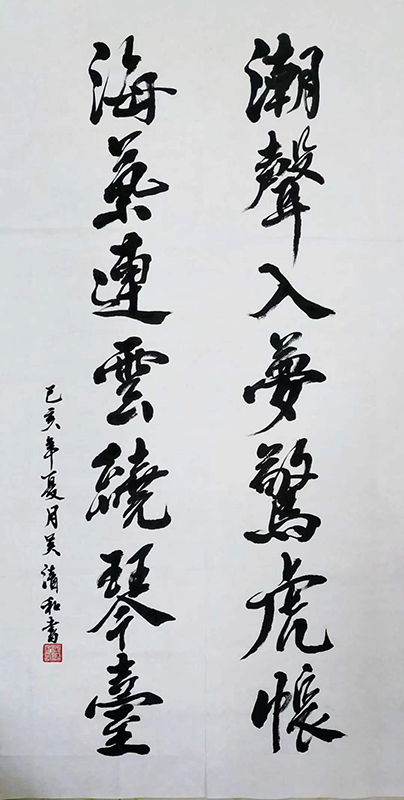 潮聲入夢驚虎帳
海氣連雲繞琴臺
己亥年夏月吴清和書